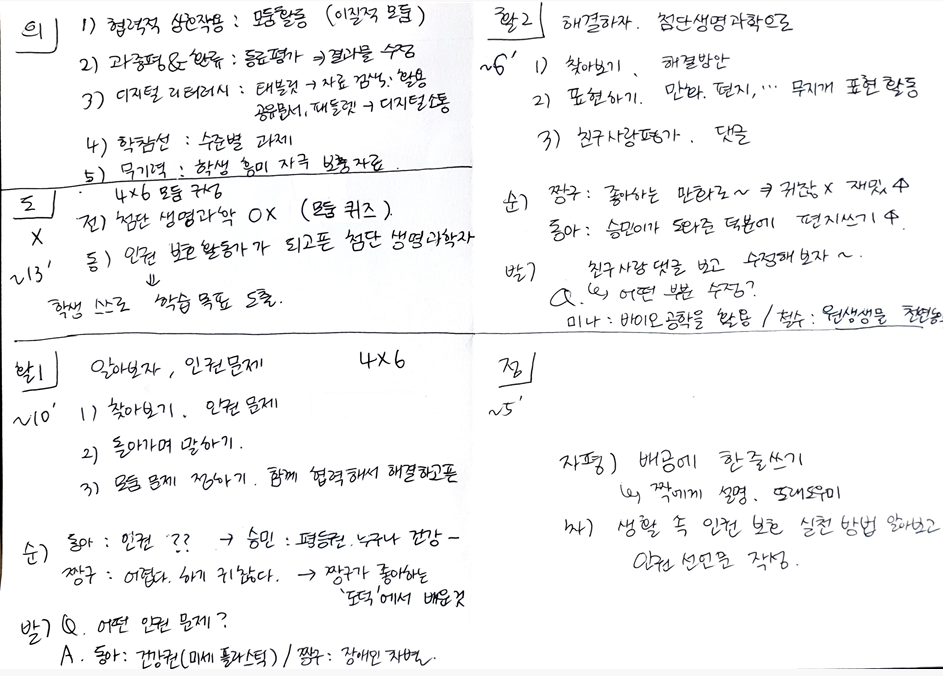 의
1) 협력적 상호작용 : 모둠활동 (이질적 모둠)
2) 과중평&환류 : 동료평가 → 결과물 수정
3) 디지털 리터러시 : 태블릿 → 자료 검색. 활용
공유문서, 패들렛 → 디지털 소통
4) 학참선 : 수준별 과제
5) 무기력 : 학생 흥미 자극 보충자료.
도
X
~13'
4×6 모둠 구성
전) 첨단 생명과학 OX (모둠 퀴즈).
동) 인권 보호 활동가가 되고픈 첨단 생명과학자
⇓
학생 스스로 학습 목표 도출.
활1
알아보자, 인권문제 4×6
~10'
1) 찾아보기. 인권 문제
2) 돌아가며 말하기.
3) 모둠 문제 정하기. 함께 협력해서 해결하고픈
순) 동아 : 인권 ?? → 승민 : 평등권. 누구나 건강 –
짱구 : 어렵다. 하기 귀찮다. → 짱구가 좋아하는
'도덕'에서 배운 것
발) Q. 어떤 인권 문제?
A. 동아 : 건강권(미세 플라스틱) / 짱구 : 장애인 차별.
활2
해결하자. 첨단생명과학으로
~6'
1) 찾아보기. 해결방안
2) 표현하기. 만화. 편지, … 무지개 표현 활동
3) 친구사랑평가. 댓글
순) 짱구 : 좋아하는 만화로 ~ → 귀찮 X 재밌 ↑
동아 : 승민이가 도와준 덕분에 편지쓰기 ↑.
발) 친구사랑 댓글 보고 수정해보자 ~.
Q. ↳ 어떤 부분 수정?
미나 : 바이오 공학을 활용 / 철수 : 원생생물 천연농
정
~5'
자평) 배공에 한줄쓰기
↳ 짝에게 설명. 또래도우미
차) 생활 속 인권 보호 실천 방법 알아보고
인권 선언문 작성.